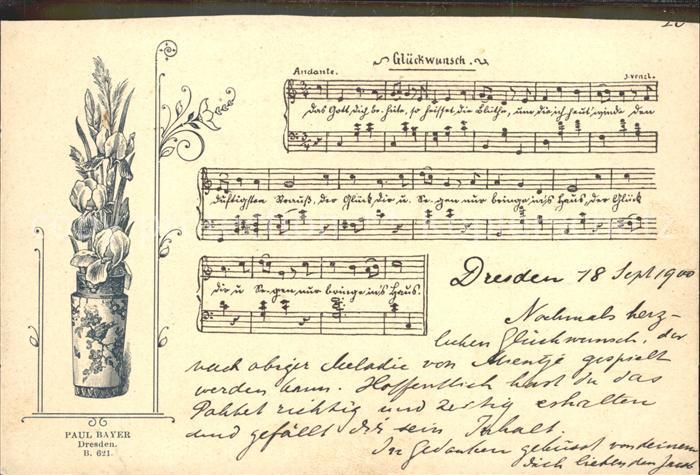 Glückwunsch.
Andante.
J. Venzl.
Das Gott, dich be-hüte, so heisset die Blüthe, und die ich heut' winde den
duftigsten Strauß, der Glück dir u. Se-gen nur bringe in's Haus, der Glück
dir u. Se-gen nur bringe in's Haus.
Dresden 18 Sept 1900
Nochmals herz-
lichen Glückwunsch, der
nach obiger Melodie von gespielt
werden kann. Hoffentlich hast du das
Packet richtig und zeitig erhalten
und gefällt dir sein Inhalt.
In Gedanken geküsst von deinem
dich liebenden
PAUL BAYER
Dresden.
B. 621.